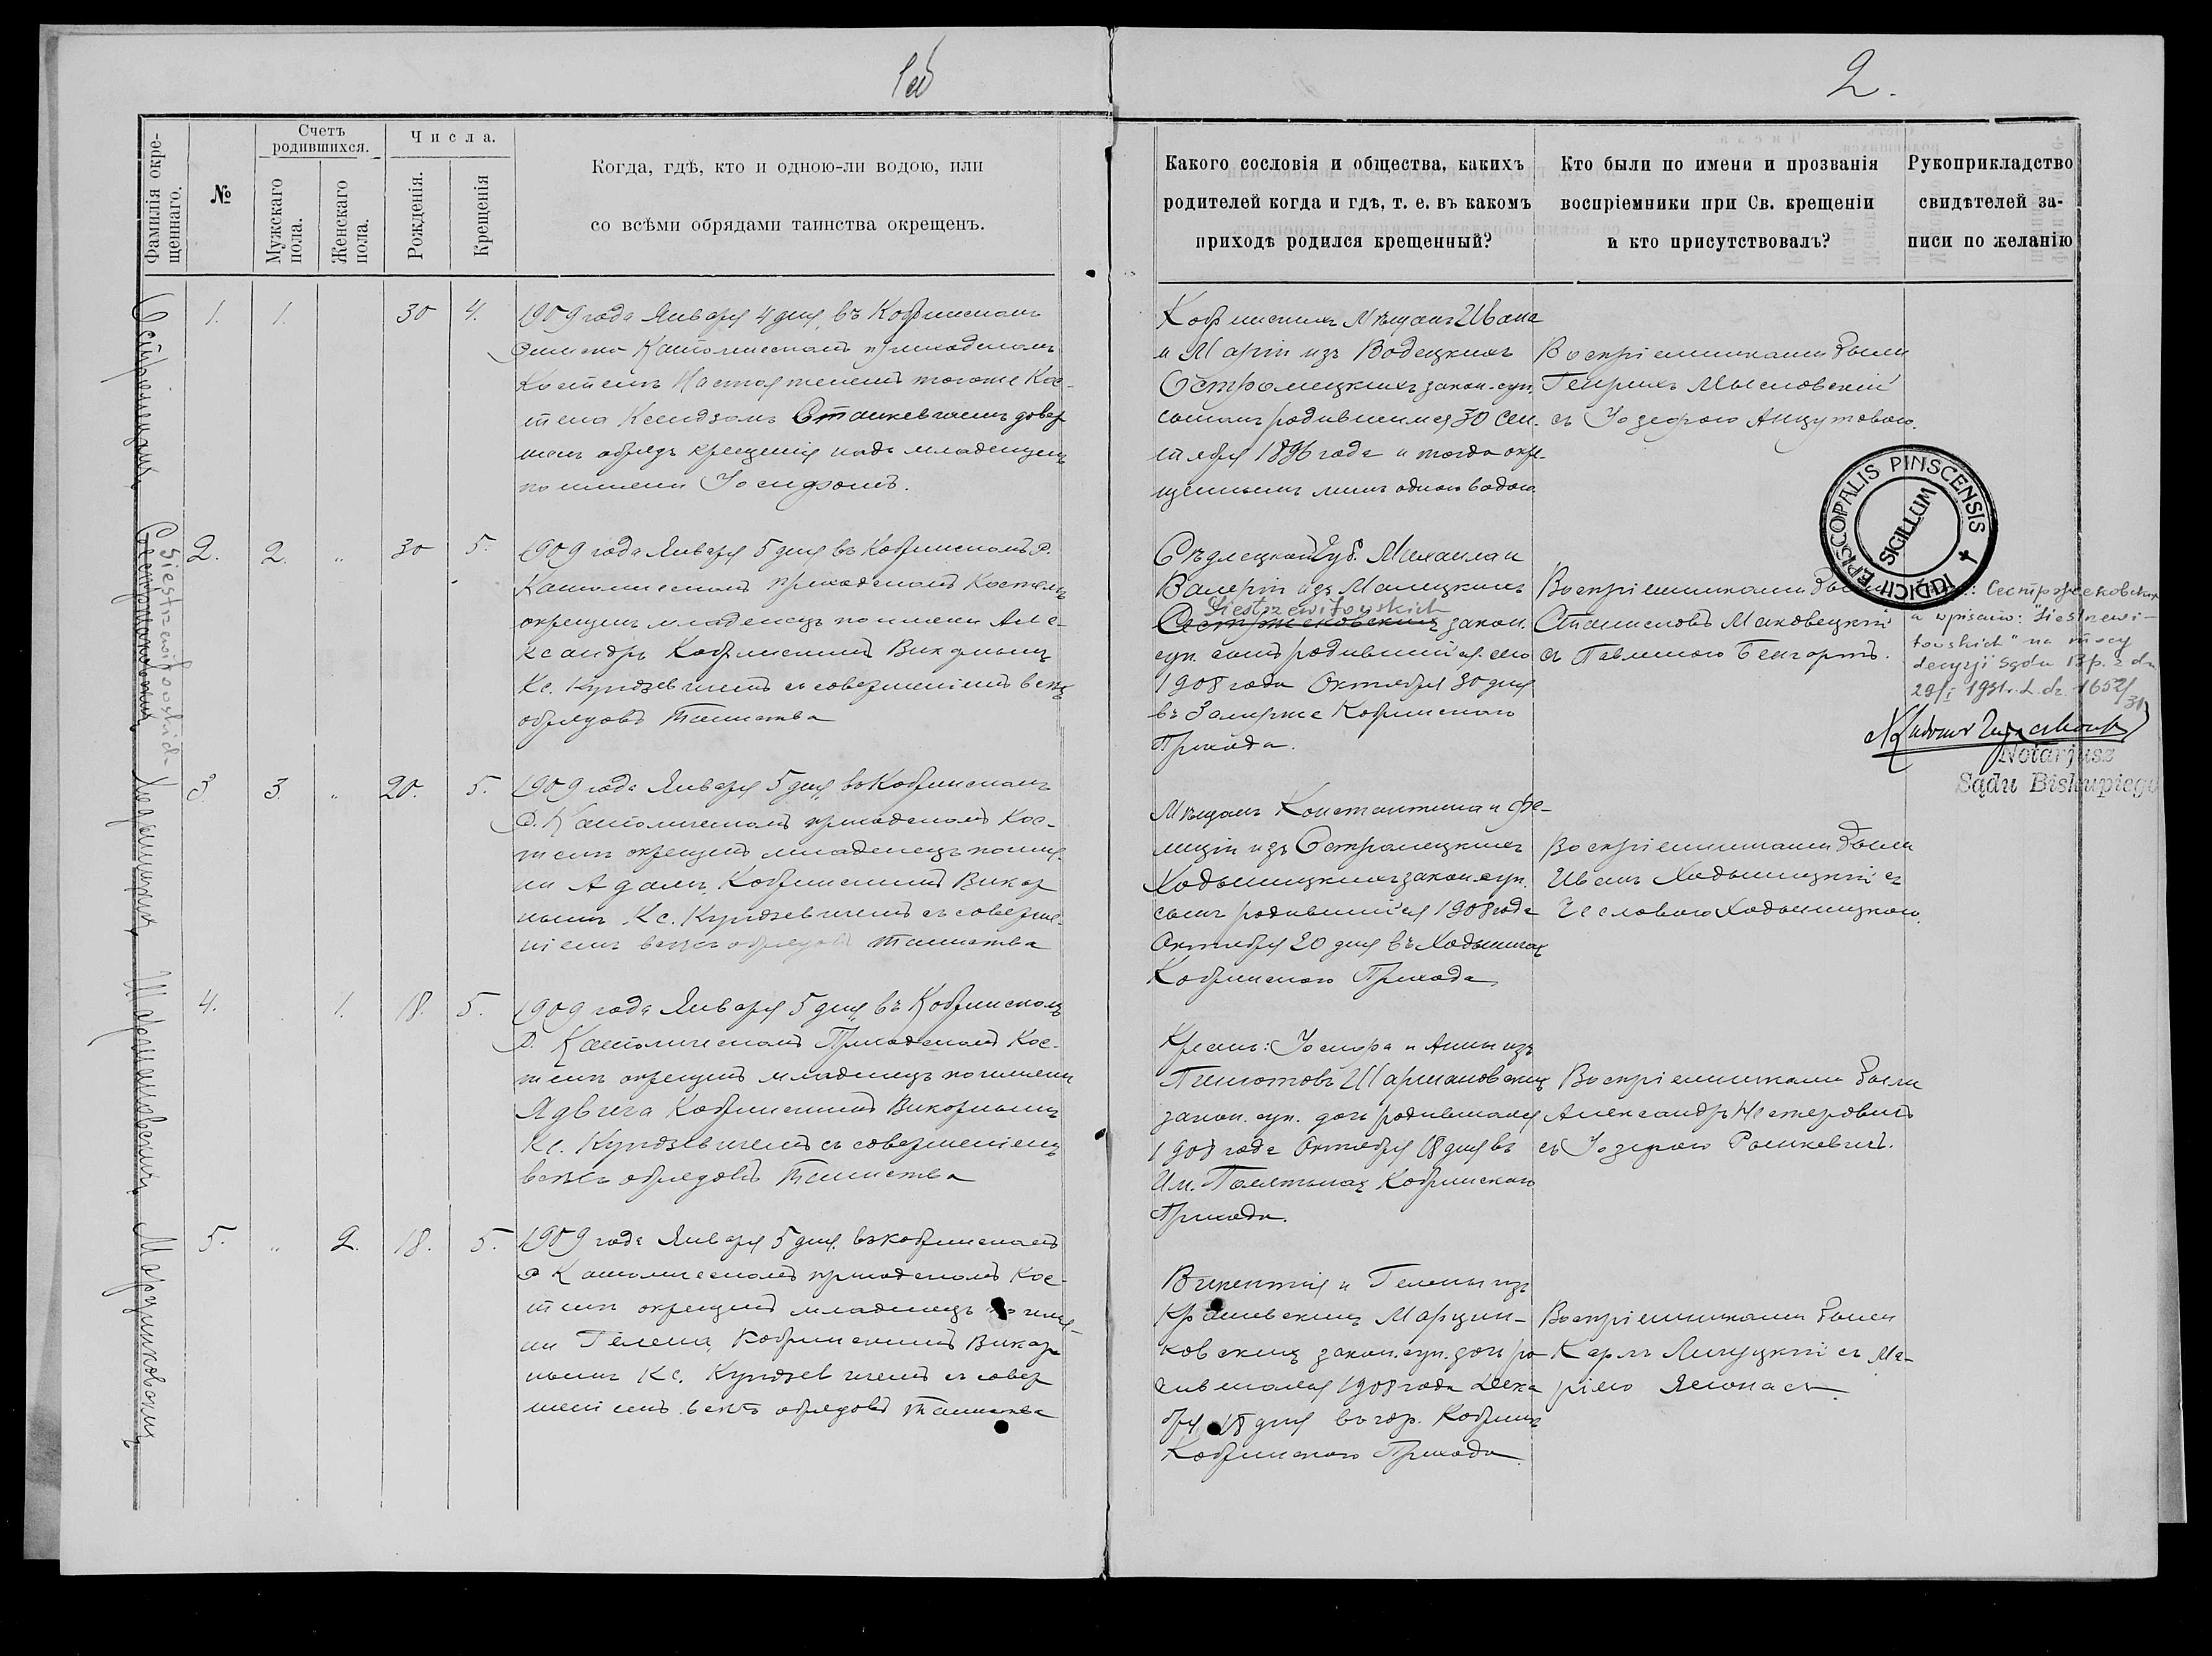 1об
2.
Фамилія окре-
щеннаго.
№
Счетъ
родившихся.
Мужскаго
пола.
Женскаго
пола.
Числа.
Рожденія.
Крещенія
Когда, гдѣ, кто и одною-ли водою, или
со всѣми обрядами таинства окрещенъ.
Какого сословія и общества, какихъ
родителей когда и гдѣ, т. е. въ какомъ
приходѣ родился крещенный?
Кто были по имени и прозванія
воспріемники при Св. крещеніи
и кто присутствовалъ?
Рукоприкладство
свидѣтелей за-
писи по желанію
1. 1. 30 4.
1909 года Января 4 дня, въ Кобринскомъ
Римско Католическомъ приходскомъ
Костелѣ Настоятелемъ тогоже Кос-
тела Ксендзомъ Станкевичемъ довер
шенъ обрядъ крещенія надъ младенцемъ
по имени Іосифомъ.
Кобринскихъ Мѣщанъ Ивана
и Маріи изъ Водецкихъ
Остромецкихъ закон. суп.
сыномъ родившимся 30 Сен-
тября 1896 года и тогда окре-
щеннымъ лишь одною водою
Воспріемниками были
Генрихъ Мысловскій
съ Іозефою Анцутовою.
2. 2. " 30 5.
Siestrzewitowskich
1909 года Января 5 дня въ Кобринскомъ Р.
Католическомъ приходскомъ Костелѣ
окрещенъ младенецъ по имени Але-
ксандръ Кобринскимъ Викарнымъ
Кс. Кундзевичемъ съ совершеніемъ всѣхъ
обрядовъ Таинства
Сѣдлецкой Губ. Михаила и
Валеріи изъ Малецкихъ
Siestrzewitowskich
закон.
суп. сынъ родившійся сего
1908 года Октября 30 дня
въ Залѣже Кобринскаго
Прихода.
Воспріемниками были
Станиславъ Маковецкій
съ Павлиною Бенгортъ.
IUDICII EPISCOPALIS PINSCENSIS
SIGILLUM
a wpisano: "Siestrzewi-
towskich" na mocy
decyzji Sądu Bp. z dn.
29/I 1931 r. L. dz. 1652/31
Notarjusz
Sądu Biskupiego
3. 3. " 20. 5.
1909 года Января 5 дня, въ Кобринскомъ
Р. Католическомъ приходскомъ Кос-
телѣ окрещенъ младенецъ по име-
ни Адамъ, Кобринскимъ Викар
нымъ Кс. Кундзевичемъ съ соверше-
ніемъ всѣхъ обрядовъ Таинства
Мѣщанъ Константина и Фе-
лиціи изъ Остромецкихъ
Ходыницкихъ закон. суп.
сынъ родившійся 1908 года
Октября 20 дня въ Ходыничахъ
Кобринскаго Прихода
Воспріемниками были
Иванъ Ходыницкій съ
Чеславою Ходыницкою.
4. 1. 18. 5.
1909 года Января 5 дня, въ Кобринскомъ
Р. Католическомъ Приходскомъ Кос-
телѣ окрещенъ младенецъ по имени
Ядвига Кобринскимъ Викарнымъ
Кс. Кундзевичемъ съ совершеніемъ
всѣхъ обрядовъ Таинства
Крестьянъ: Іосифа и Анны изъ
Шармановскихъ
закон. суп. дочь родившаяся
1908 года Октября 18 дня въ
Им. Кобринскаго
Прихода.
Воспріемниками были
Александръ Нестеровичъ
съ Іозефою Рошкевичъ.
5. " 2. 18. 5.
1909 года Января 5 дня. въ Кобринскомъ
Р Католическомъ приходскомъ Кос-
телѣ окрещенъ младенецъ по име-
ни Гелена, Кобринскимъ Викар
нымъ Кс. Кундзевичемъ съ совер
шеніемъ всѣхъ обрядовъ Таинства
Викентія и Гелены изъ
Марцин-
ковскихъ закон. суп. дочь ро-
дившаяся 1908 года Дека
бря 18 дня въ гор. Кобринѣ
Кобринскаго Прихода.
Воспріемниками были
Карлъ съ Ма-
ріею